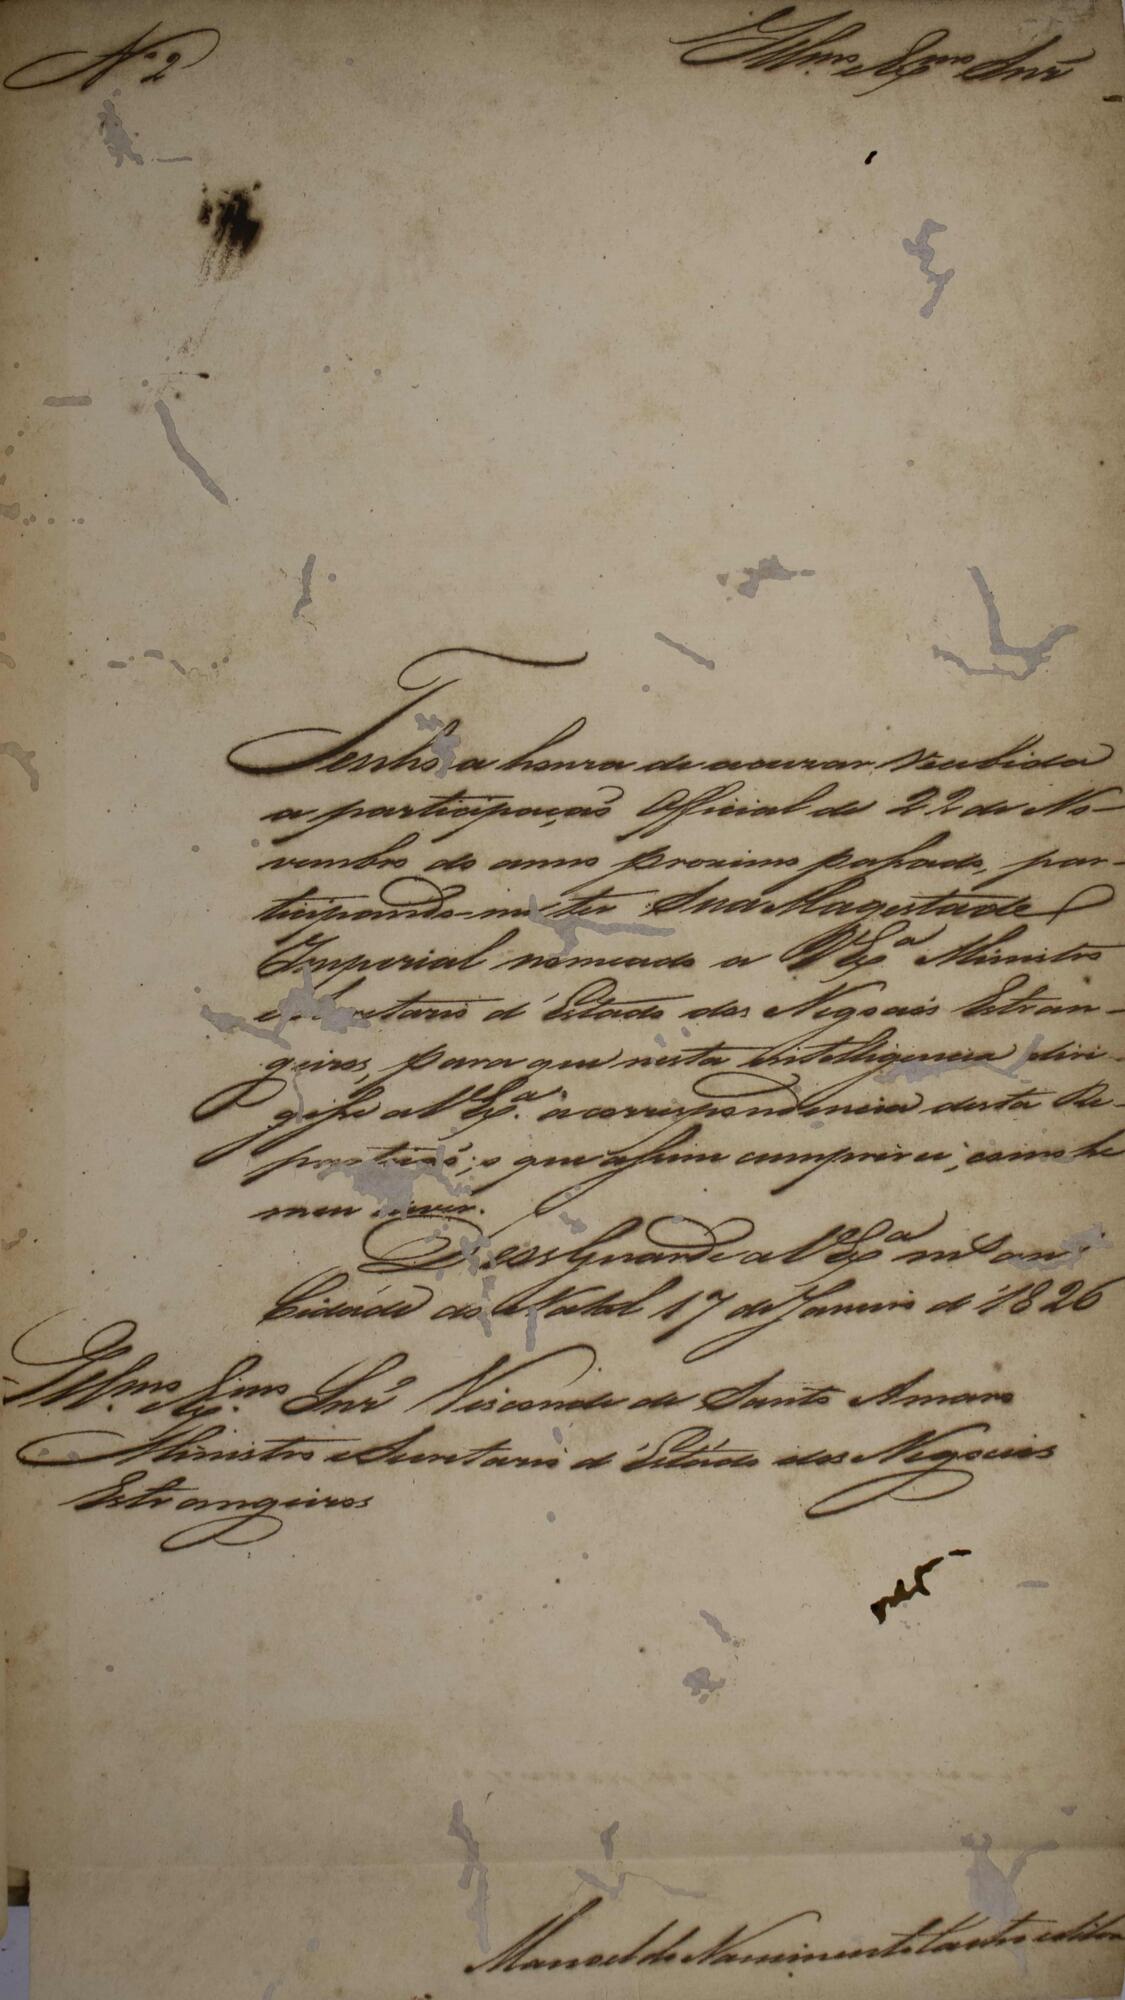 Nº 2
Illmo. e Exmo. Snr
Tenho a honra de acuzar recebida
a participação Official de 22 de No-
vembro do anno proximo passado, par-
ticipando-me ter Sua Magestade
Imperial nomeado a V Exª Ministro
e Secretario d'Estado dos Negocios Estran-
geiros, para que nesta intelligencia diri-
gisse a V Exª. a correspondencia desta Re-
partição; o que assim cumprirei, como he
meu dever.
Deos Guarde a V Exª mˢ anˢ
Cidade do Natal 17 de Janeiro de 1826
Illmo. e Exmo. Snr Visconde de Santo Amaro
Ministro e Secretario d'Estado dos Negocios
Estrangeiros
Manoel do Nascimento Castro e Silva